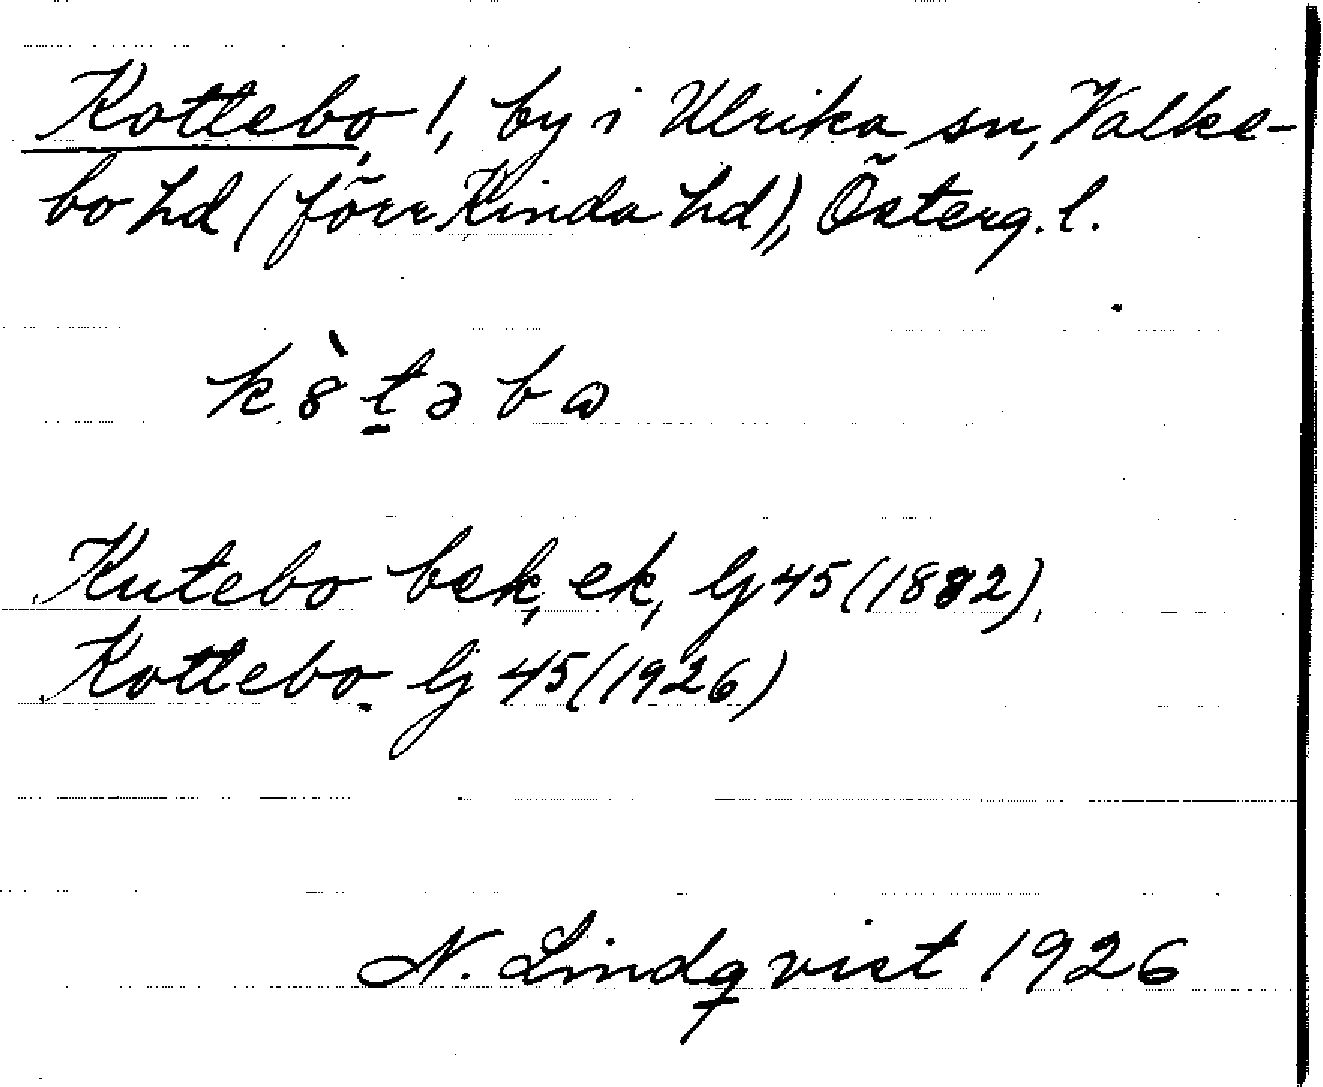 Kottebo, 1, by i Ulrika sn, Valke-
bo hd (förr Kinda hd), Österg. l.
k8̀t̠əbɷ
Kutebo bek, ek, lj 45 (1882),
Kottebo lj 45 (1926)
N. Lindqvist 1926